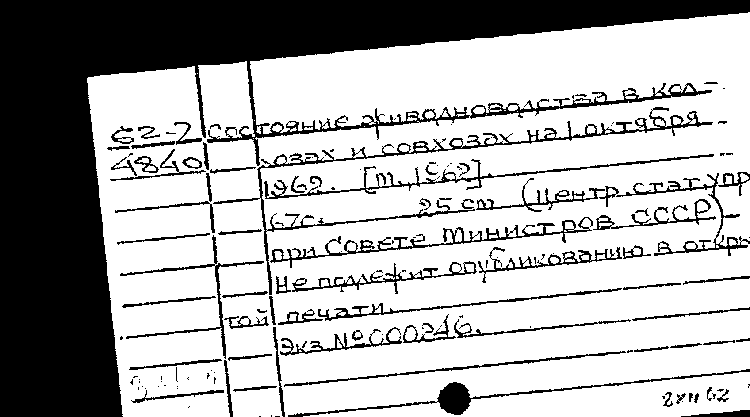 62-7 Состояние животноводства в кол-
4840 хозах и совхозах на 1 октября
1962. [М., 1962].
67с. 25 см (Центр. стат. упр
при Совете Министров СССР)
Не подлежит опубликованию в откры
той печати.
Экз № 000246.